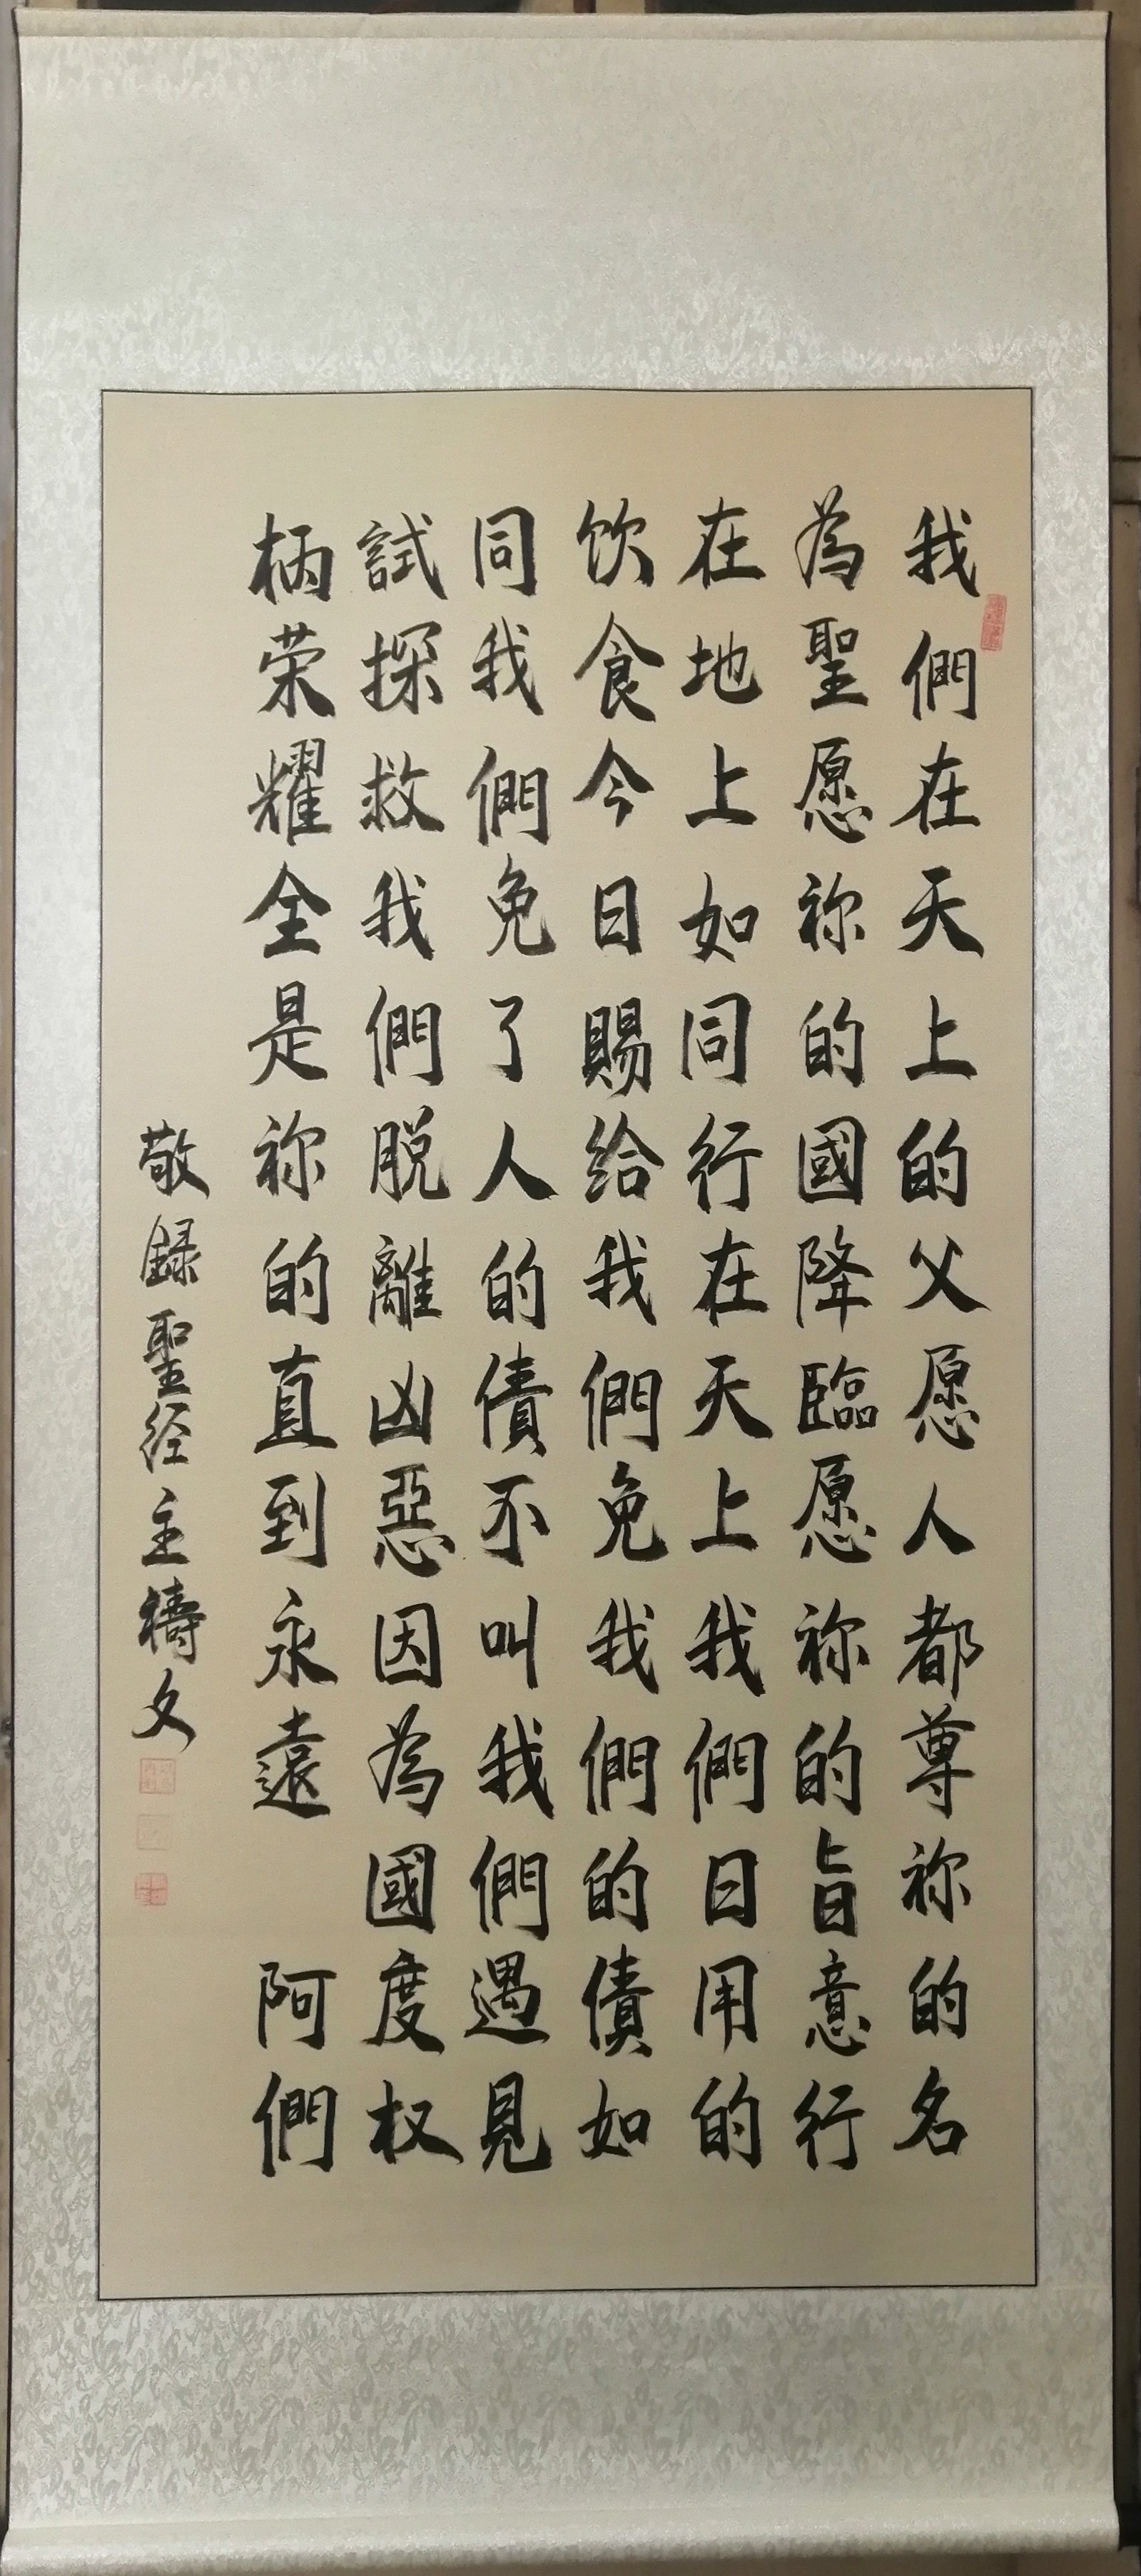 我們在天上的父愿人都尊祢的名
為聖愿祢的國降臨愿祢的旨意行
在地上如同行在天上我們日用的
饮食今日賜给我們免我們的債如
同我們免了人的債不叫我們遇見
試探救我們脱離凶惡因為國度权
柄荣耀全是祢的直到永遠 阿們
敬録聖经主禱文